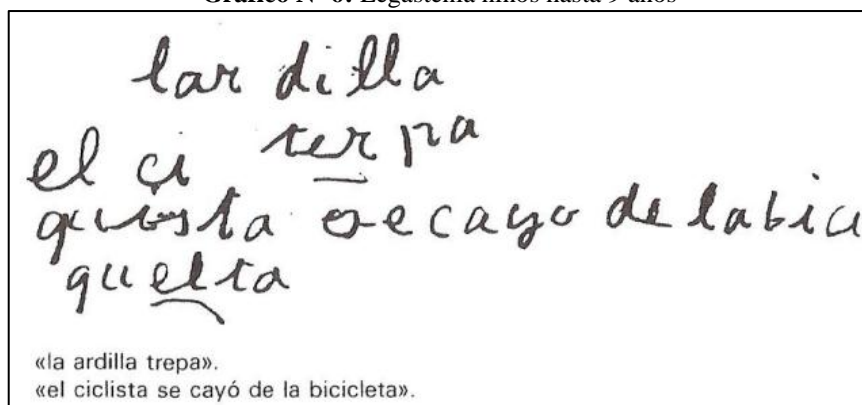 Gráfico N° 6: Legastenia niños hasta 9 años
lar dilla
terpa
el ci
quista se cayo de labici
quelta
«la ardilla trepa».
«el ciclista se cayó de la bicicleta».